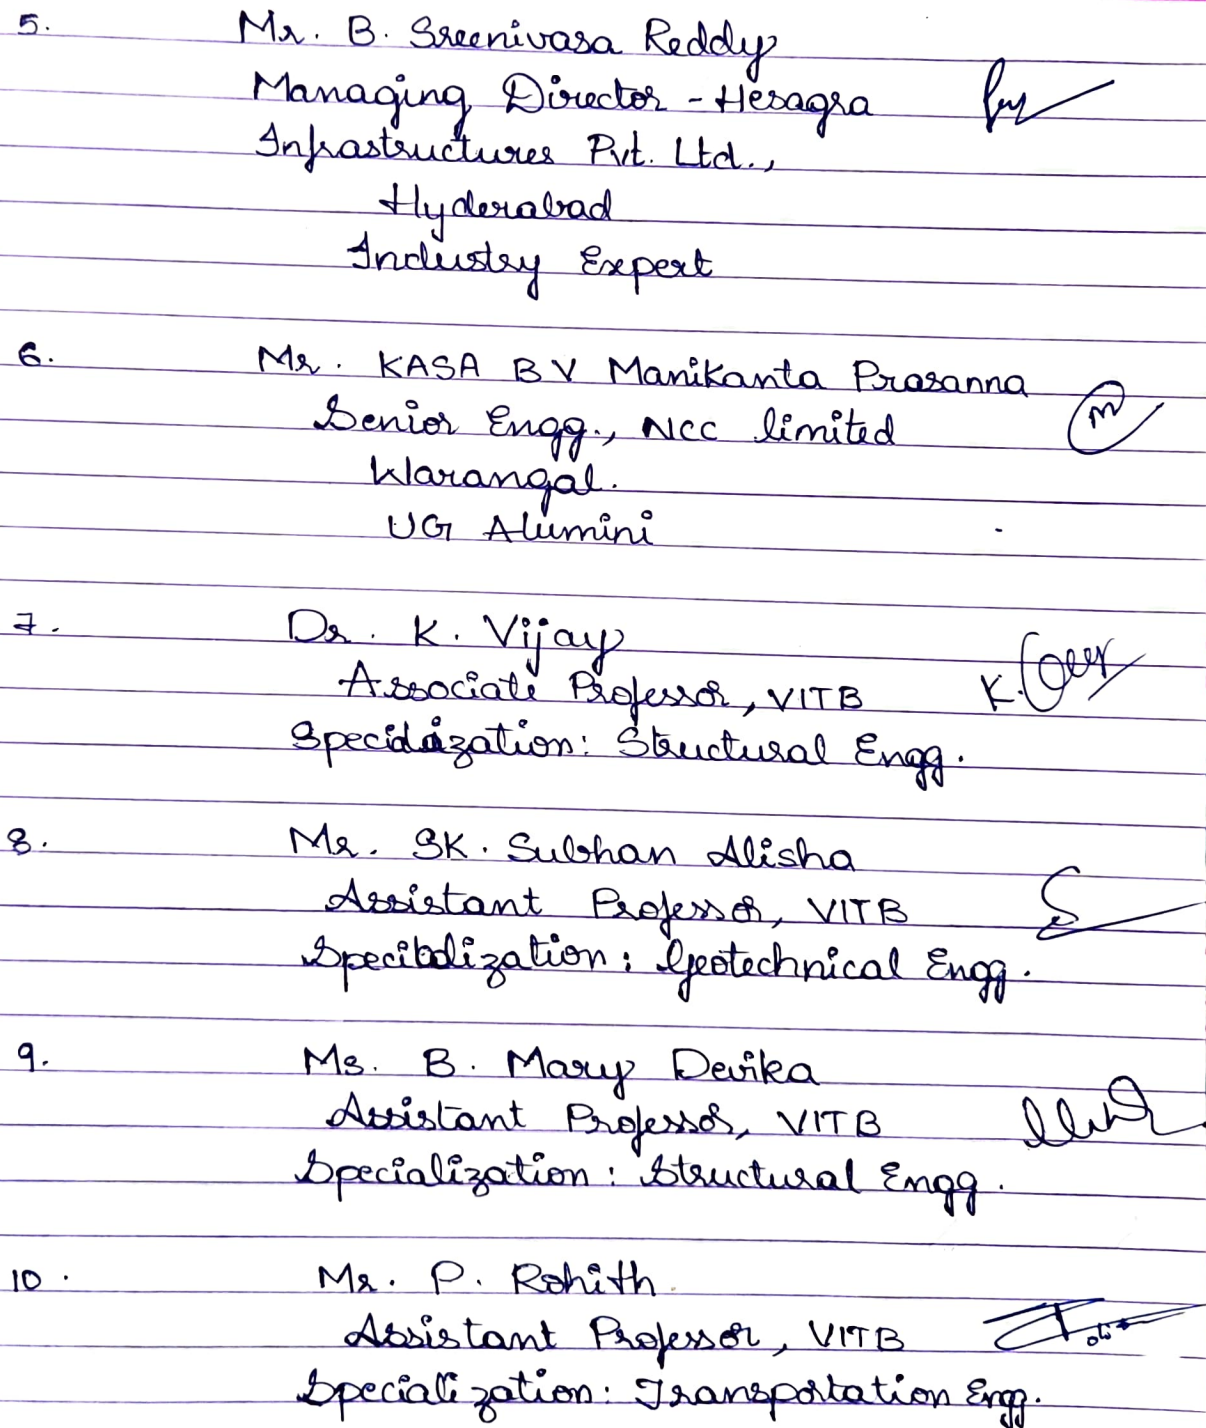 5. Mr. B. Sreenivasa Reddy
Managing Director - Hesagra
Infrastructures Pvt. Ltd.,
Hyderabad
Industry Expert
6. Mr. KASA B V Manikanta Prasanna
Senior Engg., NCC limited
Warangal.
UG Alumini
7. Dr. K. Vijay
Associate Professor, VITB
K.
Specialization: Structural Engg.
8. Mr. SK. Subhan Alisha
Assistant Professor, VITB
Specialization: Geotechnical Engg.
9. Ms. B. Mary Devika
Assistant Professor, VITB
Specialization: Structural Engg.
10. Mr. P. Rohith.
Assistant Professor, VITB
Specialization: Transportation Engg.